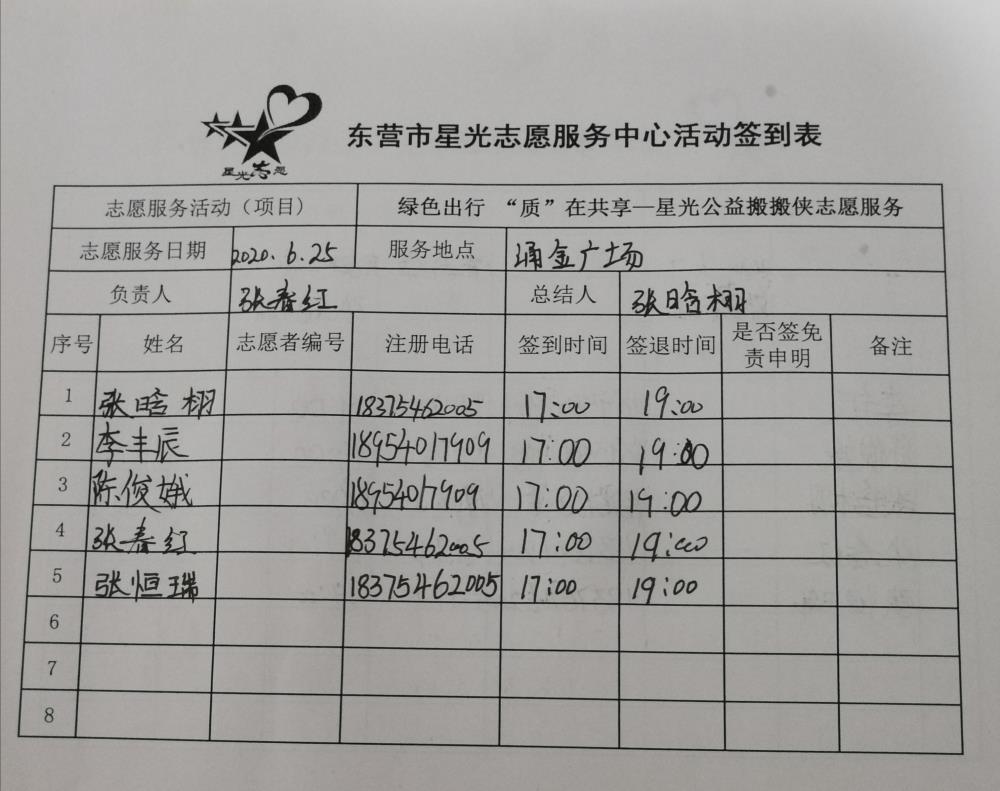 星光志愿
东营市星光志愿服务中心活动签到表
志愿服务活动（项目） 绿色出行 “质”在共享—星光公益搬搬侠志愿服务
志愿服务日期 2020.6.25 服务地点 涌金广场
负责人 张春红 总结人 张晗栩
序号 姓名 志愿者编号 注册电话 签到时间 签退时间 是否签免责申明 备注
1 张晗栩 18375462005 17:00 19:00
2 李丰辰 18954017909 17:00 19:00
3 陈俊娥 18954017909 17:00 19:00
4 张春红 18375462005 17:00 19:00
5 张恒瑞 18375462005 17:00 19:00
6
7
8